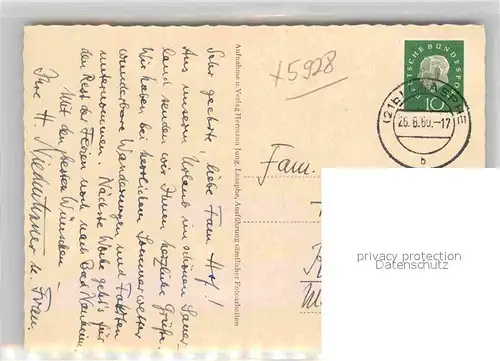 Sehr geehrte, liebe Fam. Hof!
Aus unserem Urlaub im schönen Sauer-
land senden wir Ihnen herzliche Grüße.
Wir haben bei herrlichem Sommerwetter
wunderbare Wanderungen und Fahrten
unternommen. Nächste Woche geht's für
den Rest der Ferien noch nach Bad Nauheim.
Mit den besten Wünschen
Ihre H. u. Frau
Aufnahme u. Verlag Hermann Jung, Laasphe, Ausführung sämtlicher Fotoarbeiten
+5928
DEUTSCHE BUNDESPOST
10
(21b) LAASPHE
26.8.60.-17
b
Fam.
privacy protection
Datenschutz